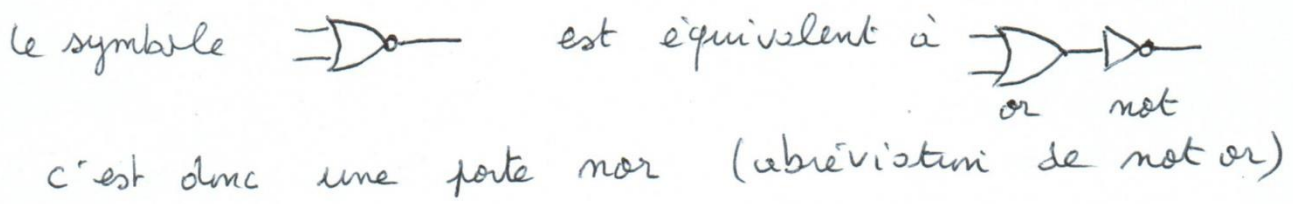 le symbole est équivalent à
or not
c'est donc une porte nor (abréviation de not or)